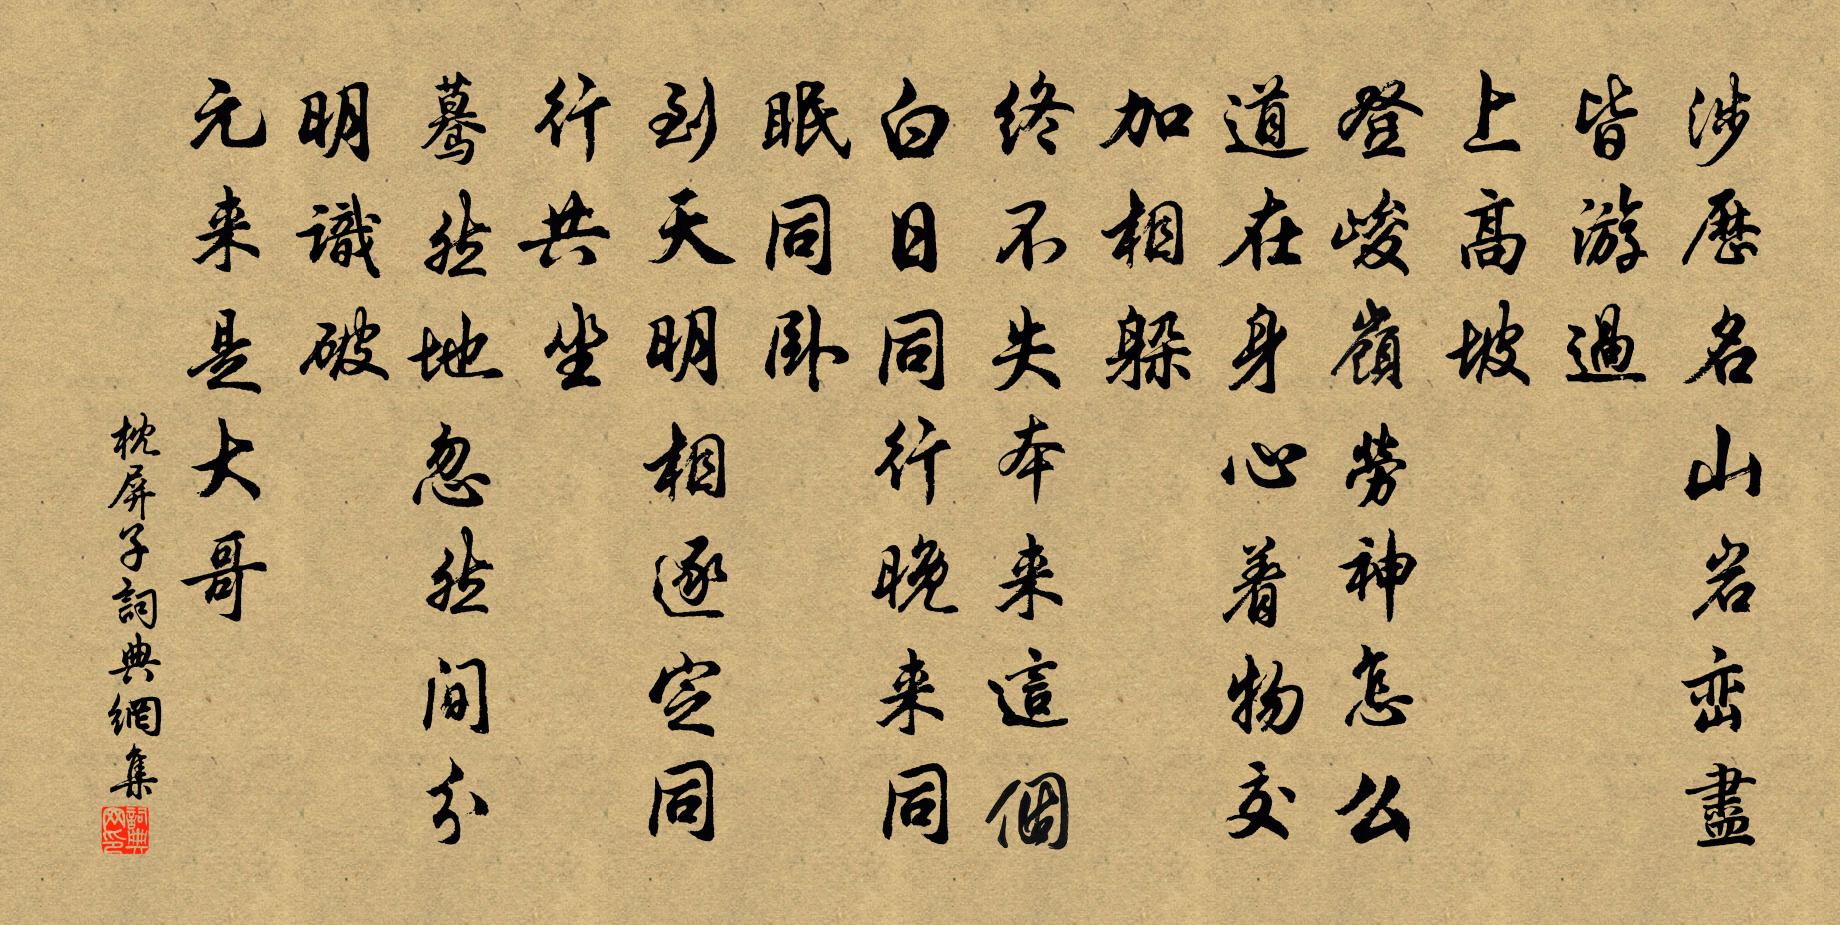 涉歷名山岩峦盡
皆游過
上高坡
登峻嶺勞神怎么
道在身心着物交
加相躲
終不失本来這個
白日同行晚来同
眠同卧
到天明相逐定同
行共坐
驀然地忽然间分
明識破
元来是大哥
枕屏子詞典網集
詞典網印